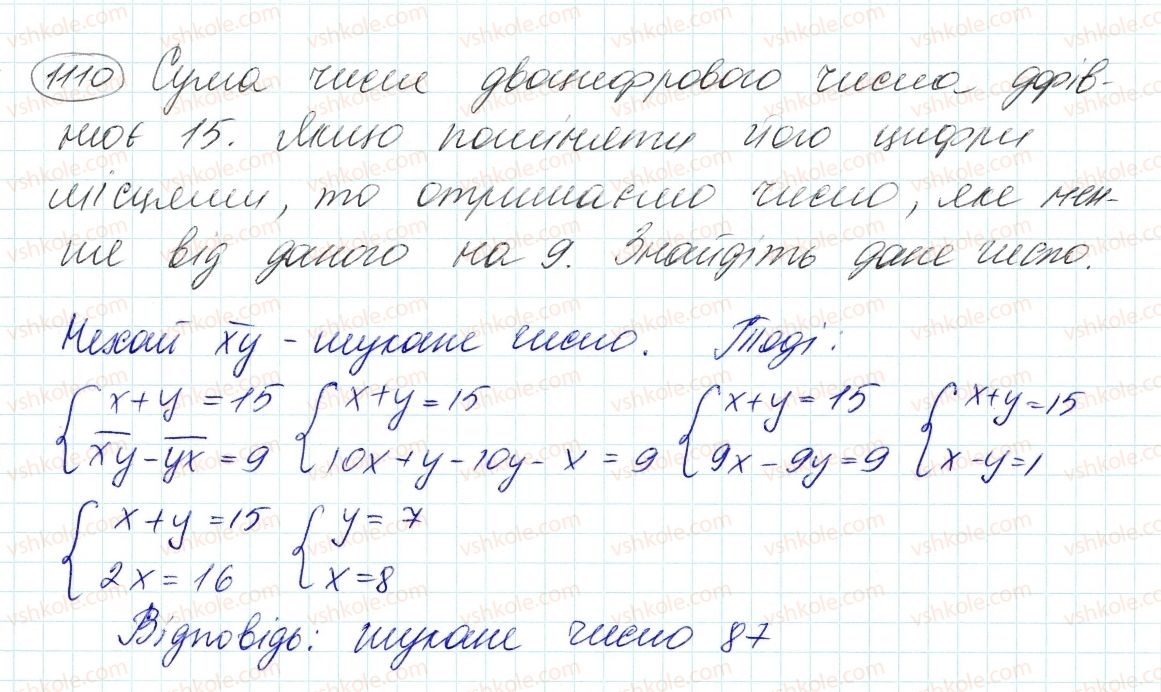 1110 Сума чисел двоцифрового числа дорів-
нює 15. Якщо поміняти його цифри
місцями, то отримаємо число, яке мен-
ше від даного на 9. Знайдіть дане число.
Нехай x̅y̅ - шукане число. Тоді:
{ x+y=15 { x+y=15 { x+y=15 { x+y=15
x̅y̅-y̅x̅=9 10x+y-10y-x=9 9x-9y=9 x-y=1
{ x+y=15 { y=7
2x=16 x=8
Відповідь: шукане число 87